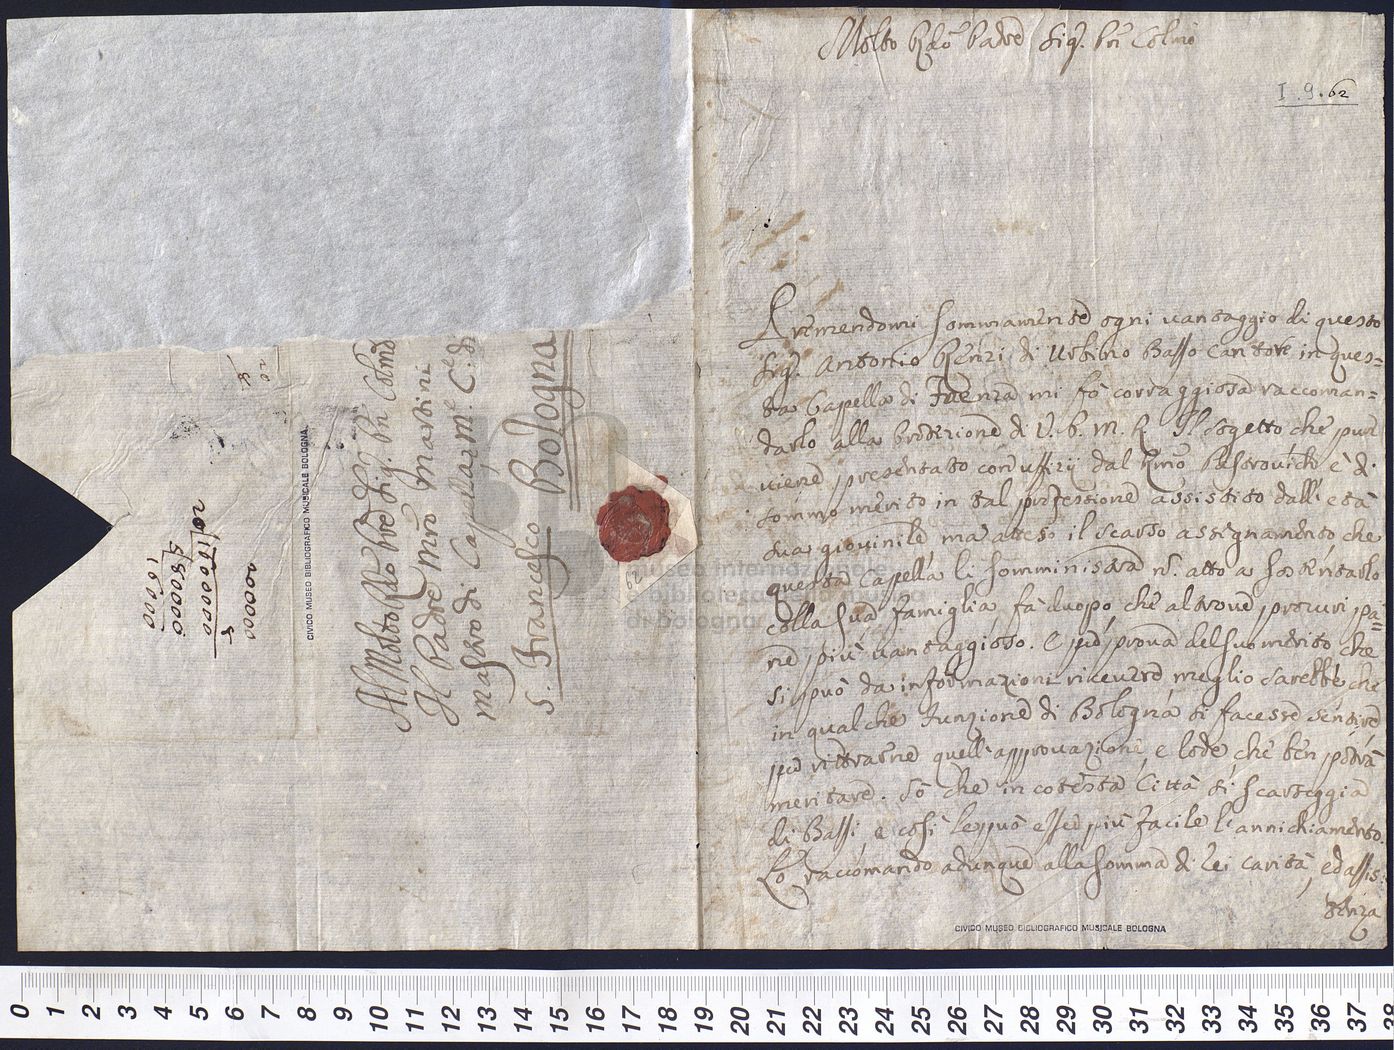 Molto Rdo Padre Sig. Prn Colmo
I.9.62
Premendomi sommamente ogni vantaggio di questo
Sig. Antonio Renzi di Urbino Basso Cantore in ques=
ta Capella di Faenza mi fò corraggiosa raccoman=
darlo alla protezione di V. P. M. R. Il sogetto che pur
viene presentato con uffizij dal Rmo è di
sommo merito in tal professione assistito dall' età
sua giovinile ma atteso il scarso assegnamento che
questa Capella li somministra n. atto a sostentarlo
colla sua famiglia, fà duopo che altrove procuri pa=
ne più vantaggioso. E per prova del suo merito che
si può da informazioni ricevere meglio sarebbe che
in qualche funzione di Bologna si facesse sentire
per ritrarne quell' approvazione, e lode, che ben potrà
meritare. Sò che in cotesta Città si scarseggia
di Bassi, e così le può esser più facile l'annichiamento.
Lo raccomando adunque alla somma di lei carità, ed assis=
tenza
CIVICO MUSEO BIBLIOGRAFICO MUSICALE BOLOGNA
Al Molto Rdo Pre Sig. Prn Colmo
Il Padre Mro Martini
Mastro di Capella M. C. di
S. Francesco Bologna
62
CIVICO MUSEO BIBLIOGRAFICO MUSICALE BOLOGNA
museo internazionale
e biblioteca della musica
di bologna
0 1 2 3 4 5 6 7 8 9 10 11 12 13 14 15 16 17 18 19 20 21 22 23 24 25 26 27 28 29 30 31 32 33 34 35 36 37 38